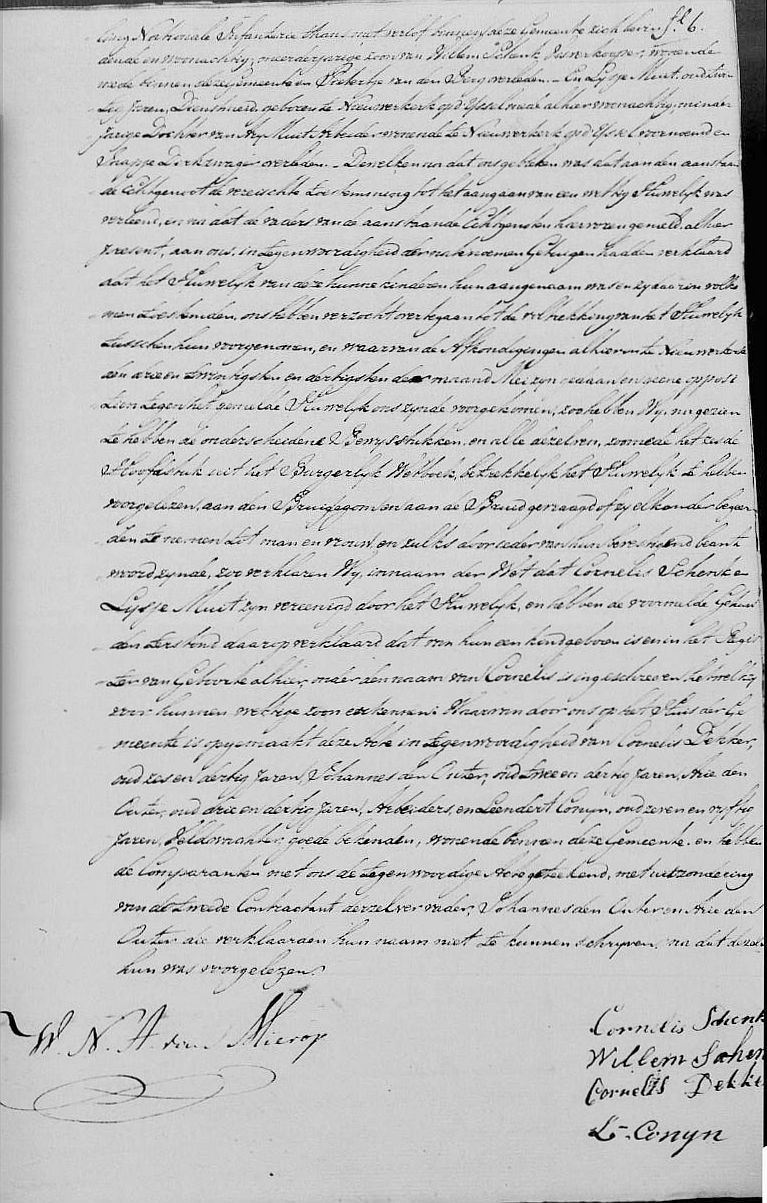 fl. 6.
ling Nationale Infanterie thans met verlof binnen deze Gemeente zich bevin
dende en woonachtig, meerderjarige zoon van Willem Schenk, wonende
mede binnen deze Gemeente en Pietertje van den Berg overleden. – En Lijsje Muit, oud twin
tig Jaren, Dienstmeid, geboren te Nieuwerkerk op d'IJssel mede alhier woonachtig, minder
jarige Dochter van Ary Muit Arbeider wonende te Nieuwerkerk op d'IJssel voornoemd en
Dirkzwager overleden. – Dewelken na dat ons gebleken was dat aan den aanstaan
de Echtgenoot de vereischte toestemming tot het aangaan van een wettig Huwelijk was
verleend, en na dat de vaders van de aanstaande Echtgenoten hiervoren gemeld, alhier
present, aan ons, in tegenwoordigheid der natenoemen Getuigen hadden verklaard
dat het Huwelijk van deze hunne kinderen hun aangenaam was en zy daarin volko
men toestemden, ons hebben verzocht overtegaan tot de voltrekking van het Huwelijk
tusschen hun voorgenomen, en waarvan de Afkondigingen alhier en te Nieuwerkerk
den drie en twintigsten en dertigsten der maand Mei zyn gedaan en geene opposi
tien tegen het gemelde Huwelijk ons zynde voorgekomen, zoo hebben Wy, na gezien
te hebben de onderscheidene Bewysstukken, en alle dezelven, zoomede het zesde
Hoofdstuk uit het Burgerlyk Wetboek, betrekkelyk het Huwelijk te hebben
voorgelezen, aan den Bruidegom en aan de Bruid gevraagd of zy elkander begeer
den te nemen tot man en vrouw, en zulks door ieder van hun bevestigend beant
woord zynde, zoo verklaren Wy, in naam der Wet dat Cornelis Schenk en
Lysje Muit zyn vereenigd door het Huwelijk, en hebben de voormelde Gehuw
den terstond daarop verklaard dat van hun een kind geboren is en in het Regis
ter van Geboorte alhier, onder den naam van Cornelis is ingeschreven hetwelk zy
voor hunnen wettige zoon erkennen: Waarvan door ons op het Huis der Ge
meente is opgemaakt deze Akte in tegenwoordigheid van Cornelis Dekker,
oud zes en dertig Jaren, Johannes den Outer, oud twee en dertig Jaren, Arie den
Outer, oud drie en dertig Jaren, Arbeiders, en Leendert Conyn, oud zeven en vyftig
Jaren, Veldwachter, goede bekenden, wonende binnen deze Gemeente. en hebben
de Comparanten met ons de tegenwoordige Akte geteekend, met uitzondering
van de tweede Contractant derzelver vader, Johannes den Outer en Arie den
Outer die verklaarden hun naam niet te kunnen schryven, na dat dezelve
hun was voorgelezen.
W. N. A. van Mierop
Cornelis Schenk
Willem Schen
Cornelis Dekke
L. Conyn